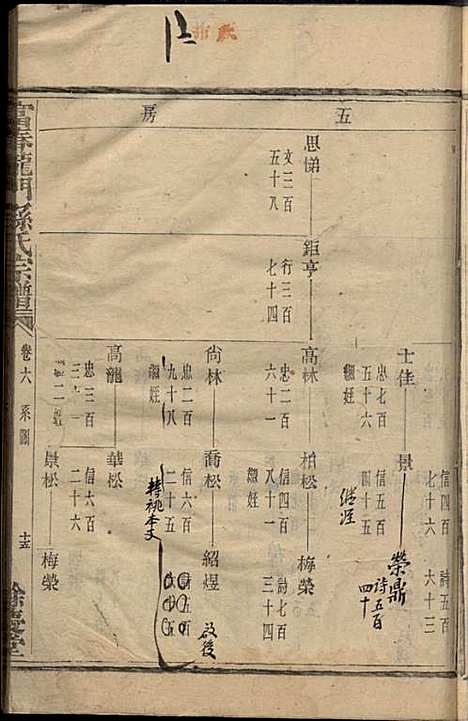 五房
思悌
文三百
五十八
鉅亨
行三百
七十四
士佳
忠七百
五十六
繼姪
景
信五百
四十五
信四百
七十六
詩五百
六十三
榮鼎
詩五百
四十
高林
忠二百
六十一
柏松
信四百
八十一
繼姪
梅榮
詩七百
三十四
尙林
忠二百
九十八
繼姪
喬松
信六百
二十五
轉祧本文
紹煜
啟後
高龍
忠三百
華松
信六百
二十六
景松
梅榮
富春龍門孫氏宗譜
卷六 系圖
十五
餘慶堂